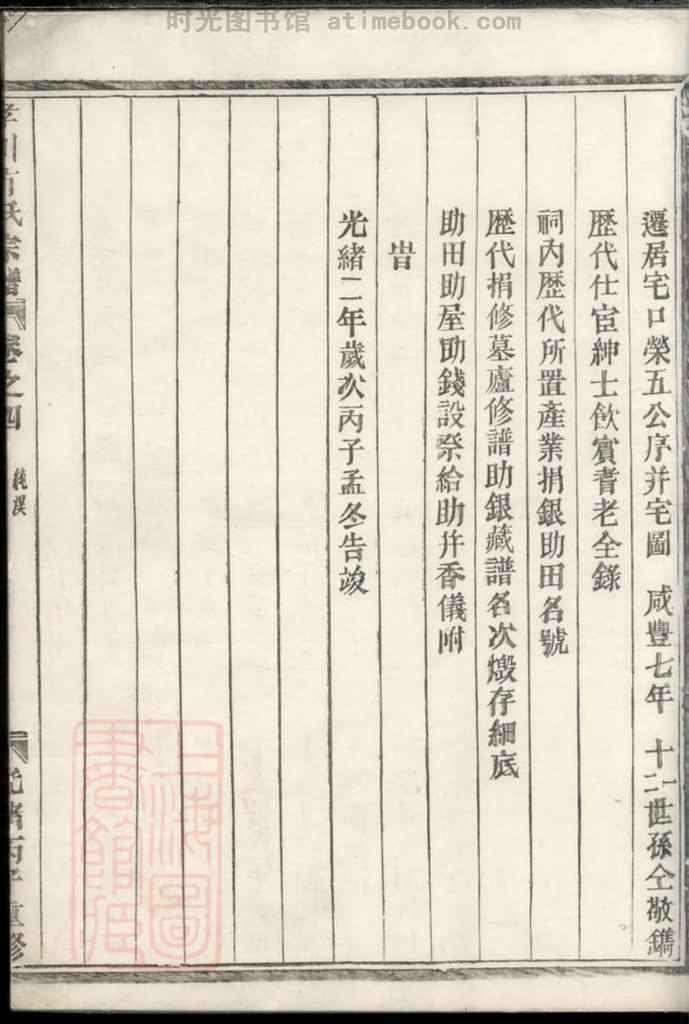 时光图书馆 atimebook.com
遷居宅口榮五公序并宅圖 咸豐七年 十二世孫仝敬鐫
歴代仕宦紳士飲賓耆老全錄
祠內歴代所置產業捐銀助田名號
歴代捐修墓廬修譜助銀藏譜名次燬存細底
助田助屋助錢設祭給助并香儀附
旹
光緒二年歲次丙子孟冬告竣
氏宗譜 卷之四 光緒丙子重修
上海圖書館藏